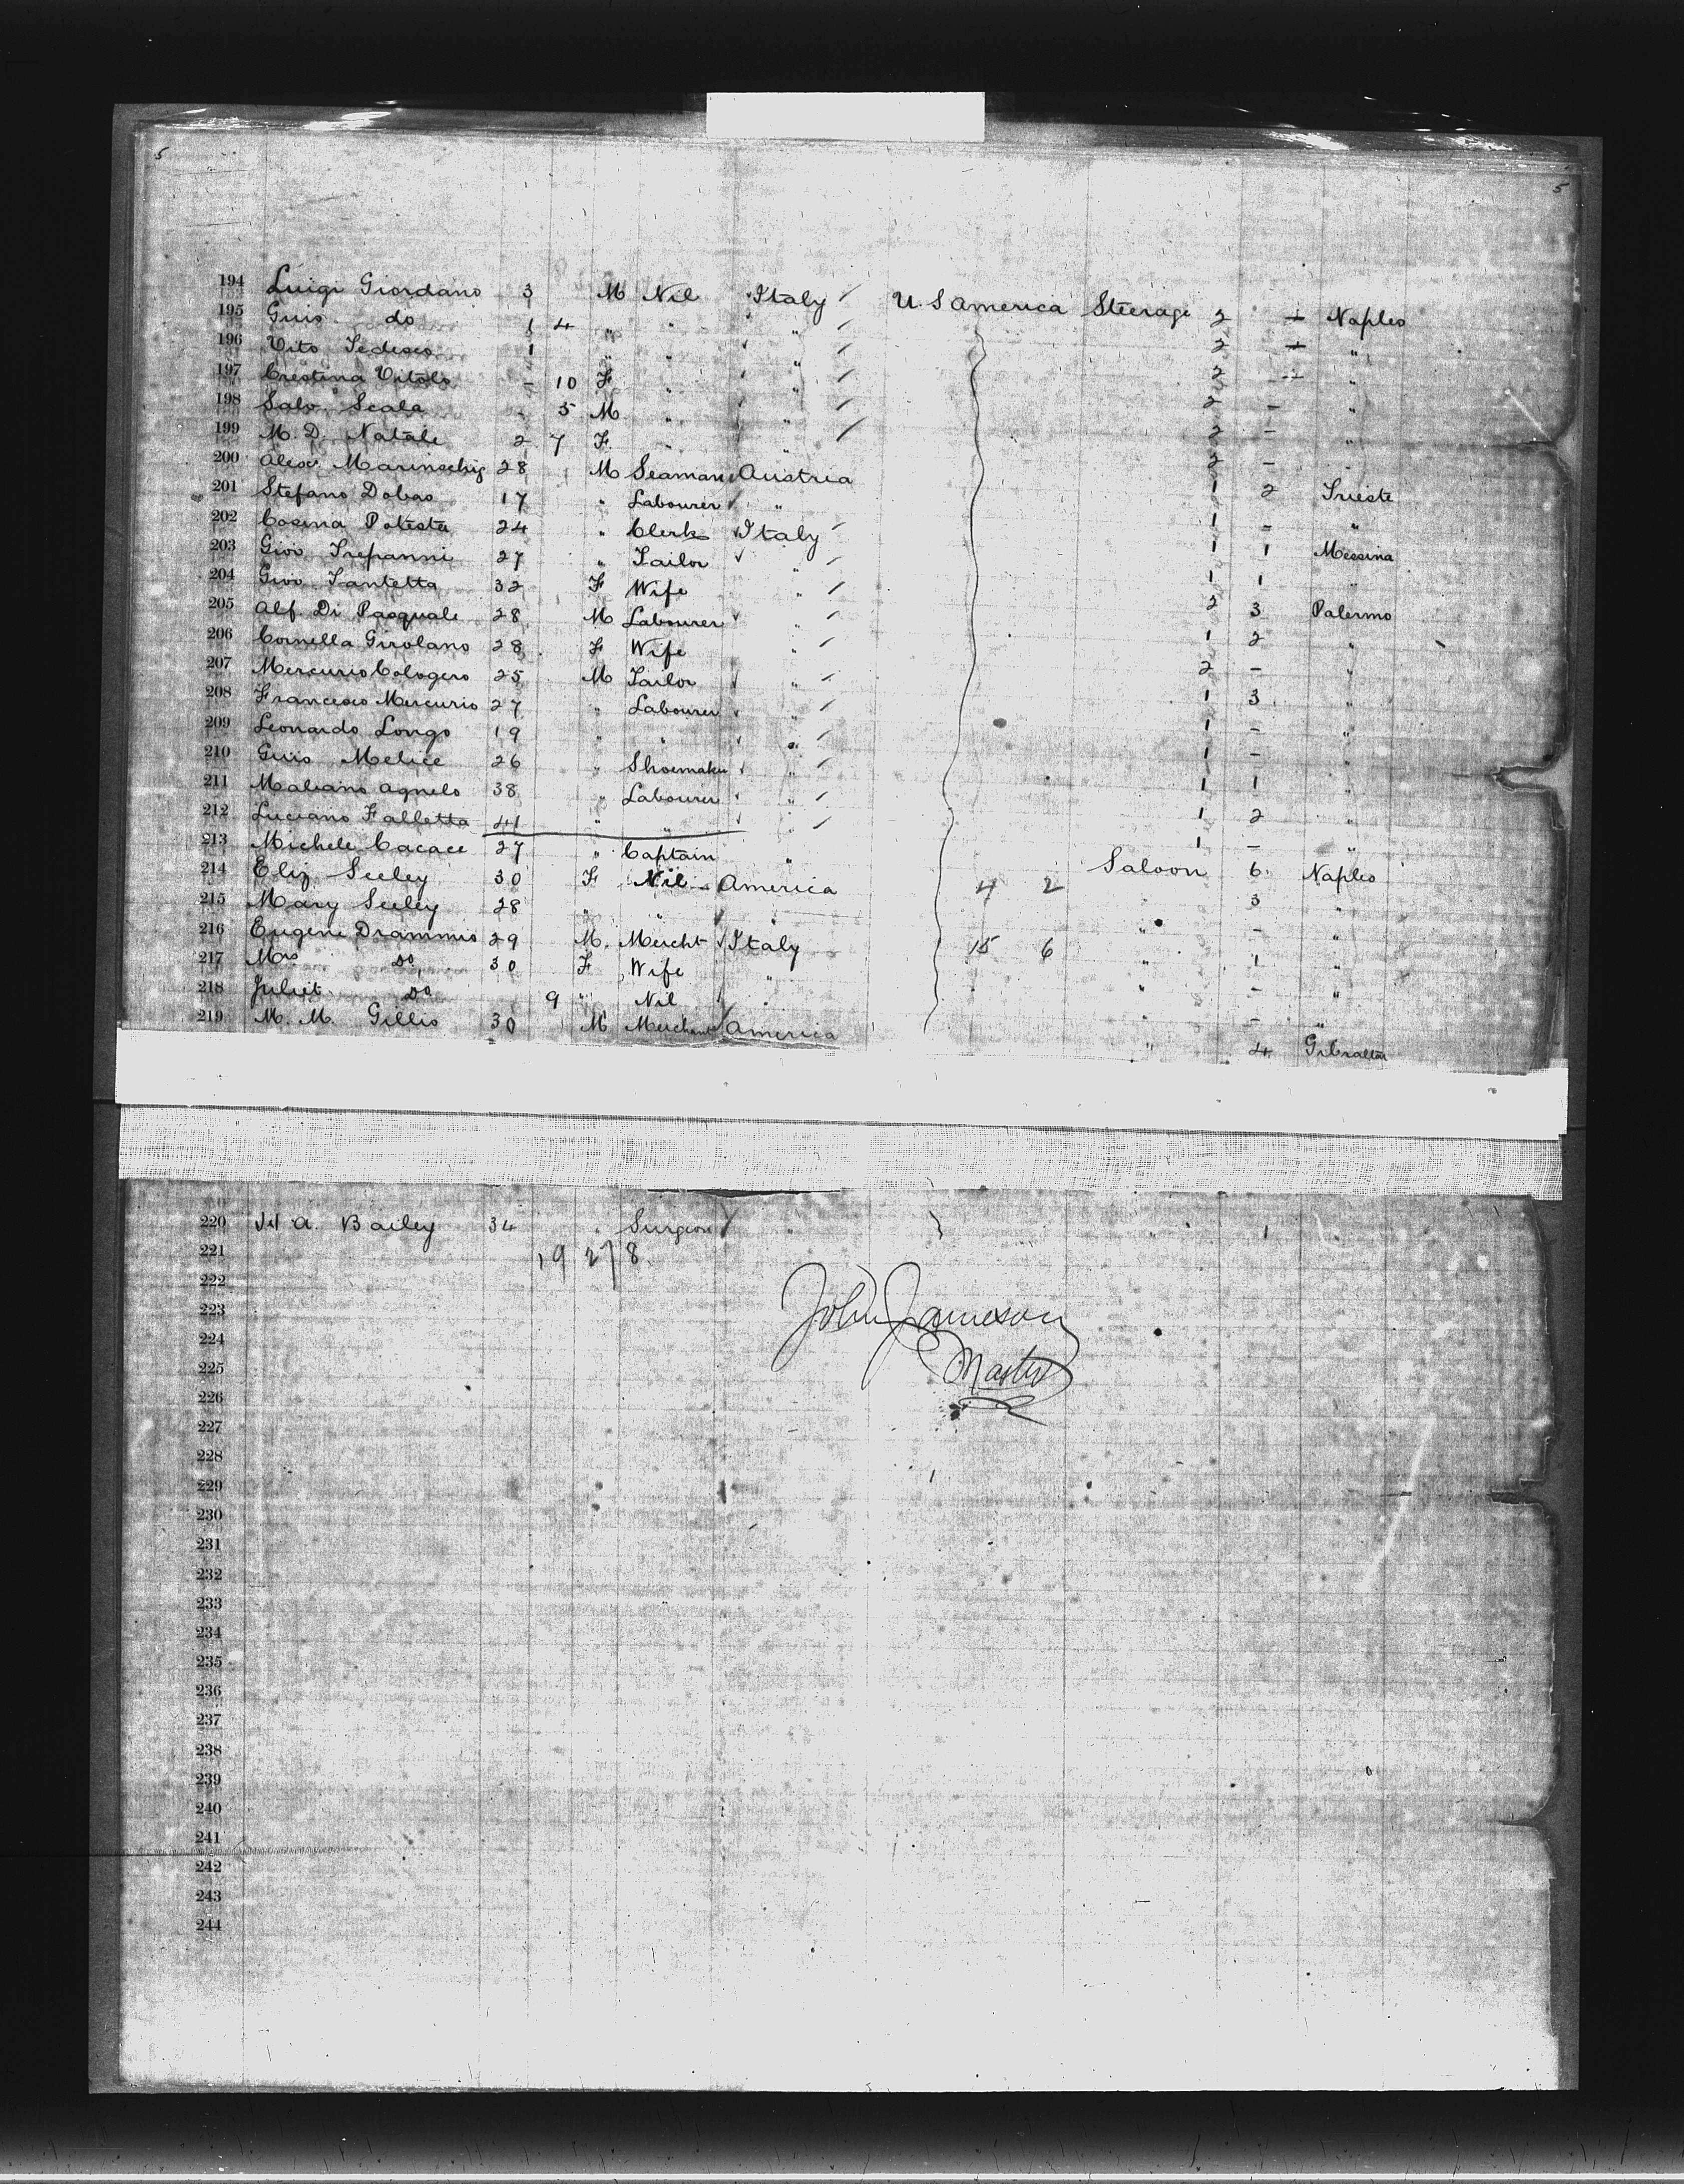 5 5
194 Luigi Giordano 3 M Nil Italy U. S America Steerage 2 Naples
195 Guis do 1 4 " " " 2 "
196 Vito Tedesco 1 " " " 2 "
197 Crestina Vitolo - 10 F " " 2 - "
198 Salv. Scala - 5 M " " 2 - "
199 M. D. Natale 2 7 F " " 2 - "
200 Alex Marinschig 28 M Seaman Austria 1 2 Trieste
201 Stefano Dobas 17 " Labourer " 1 - "
202 Cosma Potesta 24 " Clerk Italy 1 1 Messina
203 Giov Trepanni 27 " Tailor " 1 1 "
204 Giov Santetta 32 F Wife " 2 3 Palermo
205 Alf. Di Pasquale 28 M Labourer " 1 2 "
206 Cornella Girolano 28 F Wife " 2 - "
207 Mercurio Cologero 25 M Tailor " 1 3 "
208 Francesco Mercurio 27 " Labourer " 1 - "
209 Leonardo Longo 19 " " " 1 - "
210 Guis Melice 26 " Shoemaker " 1 1 "
211 Maliano Agnelo 38 " Labourer " 1 2 "
212 Luciano Falletta 41 " " " 1 - "
213 Michele Cacace 27 " Captain " Saloon 6 Naples
214 Eliz Seeley 30 F Nil America 4 2 " 3 "
215 Mary Seeley 28 " " " " - "
216 Eugene Drammis 29 M. Mercht Italy 15 6 " 1 "
217 Mrs Do 30 F Wife " " - "
218 Juliet Do 9 " Nil " " - "
219 M. M. Gillis 30 M Merchant America " 4 Gibraltar
220 A. Bailey 34 " Surgeon " " 1
221 19 27 8
222
223 John Jameson
224
225 Master
226
227
228
229
230
231
232
233
234
235
236
237
238
239
240
241
242
243
244